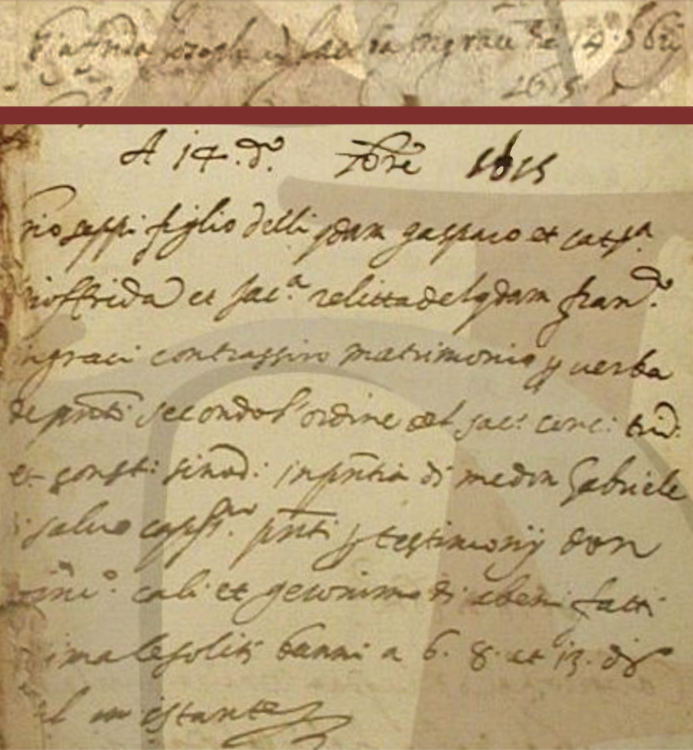 Gioffrida Ioseph et Jac.ª Ingraci die 14 Xbris
1615
A 14. d. Xbre 1615
gioseppi figlio delli qdam gasparo et cat.ª
gioffrida et Jac.ª relitta del qdam fran.
ingraci contrassiro matrimonio p verba
de pnti secondo l'ordine del sac: conc: trid:
et const: sinod: in pntia di me don Gabriele
salvo capp.no pnti p testimonij don
cali et geronimo di fatti
ima le soliti banni a 6. 8. et 13. di
l instante